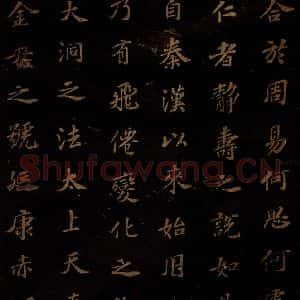 合於周易何思何
仁者靜壽之說如
自秦漢以來始用
乃有飛僊變化之
大洞之法太上天
金母之號延康赤
Shufawang.CN